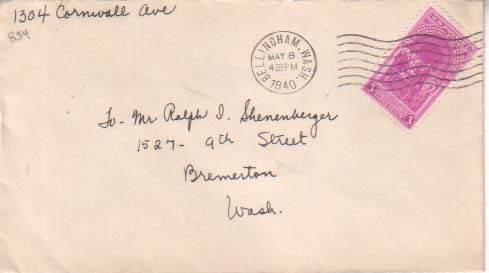 1304 Cornwall Ave
854
BELLINGHAM, WASH.
MAY 8
4 PM
1940
3 3
To- Mr Ralph I. Shenenberger
1527- 9th Street
Bremerton
Wash.